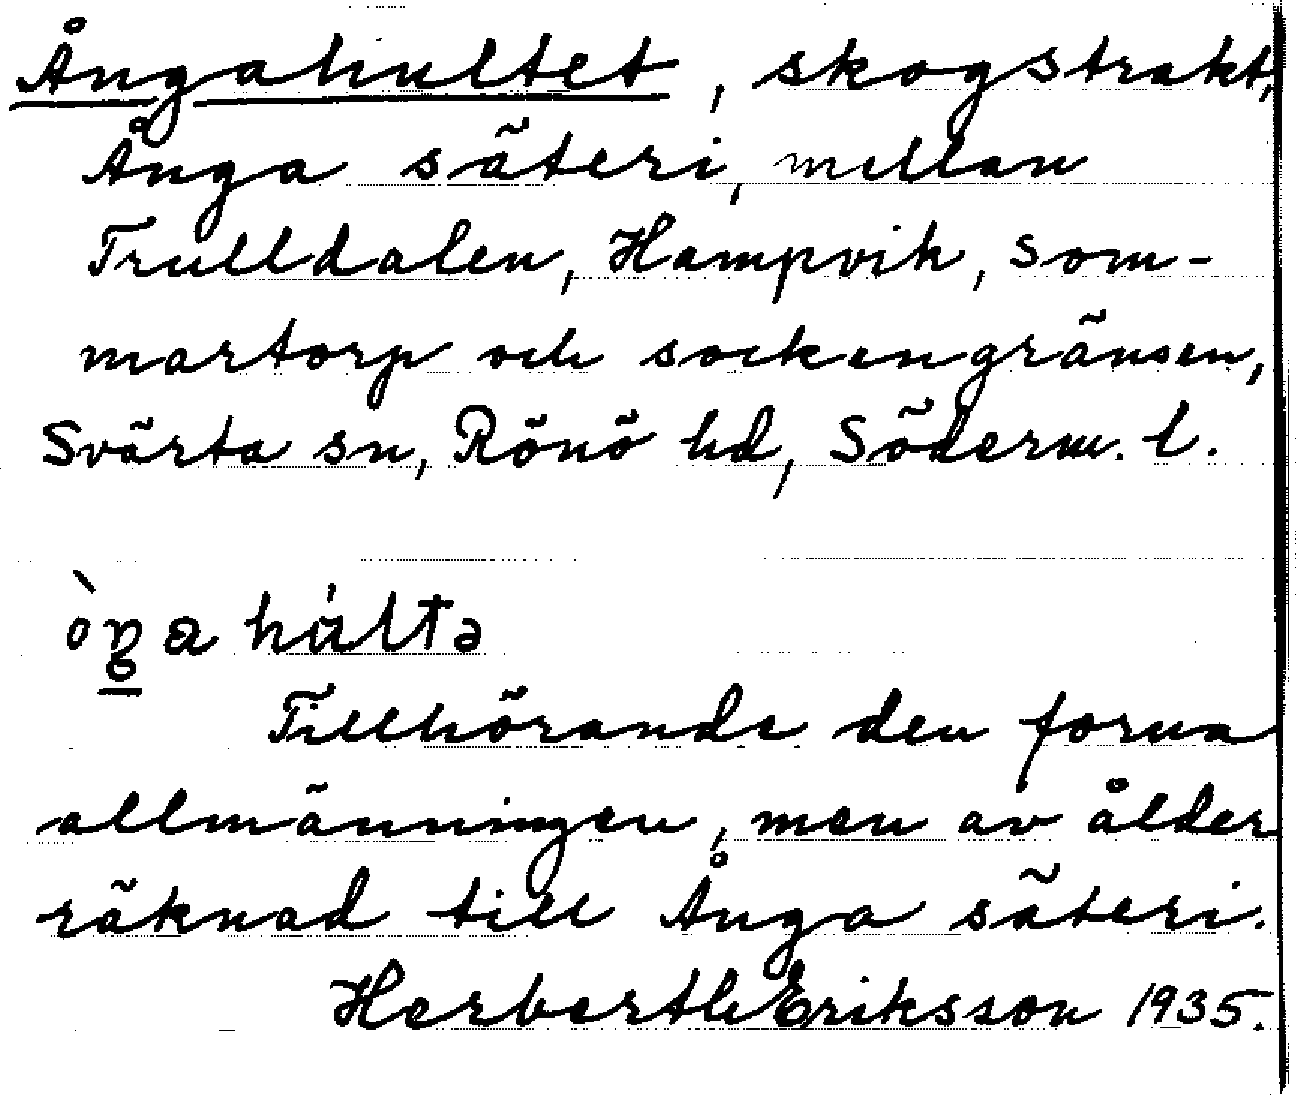 Ångahultet, skogstrakt,
Ånga säteri, mellan
Trulldalen, Hampvik, Som-
martorp och sockengränsen,
Svärta sn, Rönö hd, Söderm. l.
òŋa hálta
Tillhörande den forna
allmänningen, men av ålder
räknad till Ånga säteri.
Herbert Eriksson 1935.